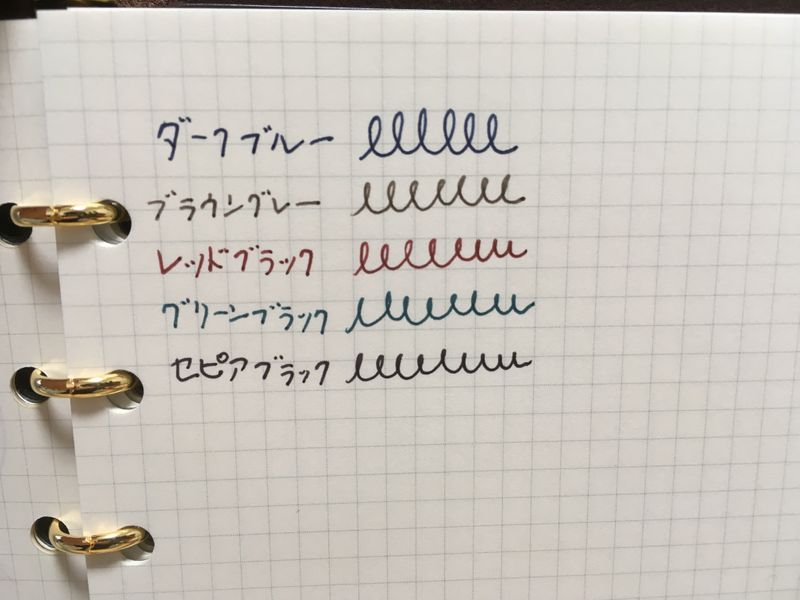 ダークブルー
ブラウングレー
レッドブラック
グリーンブラック
セピアブラック